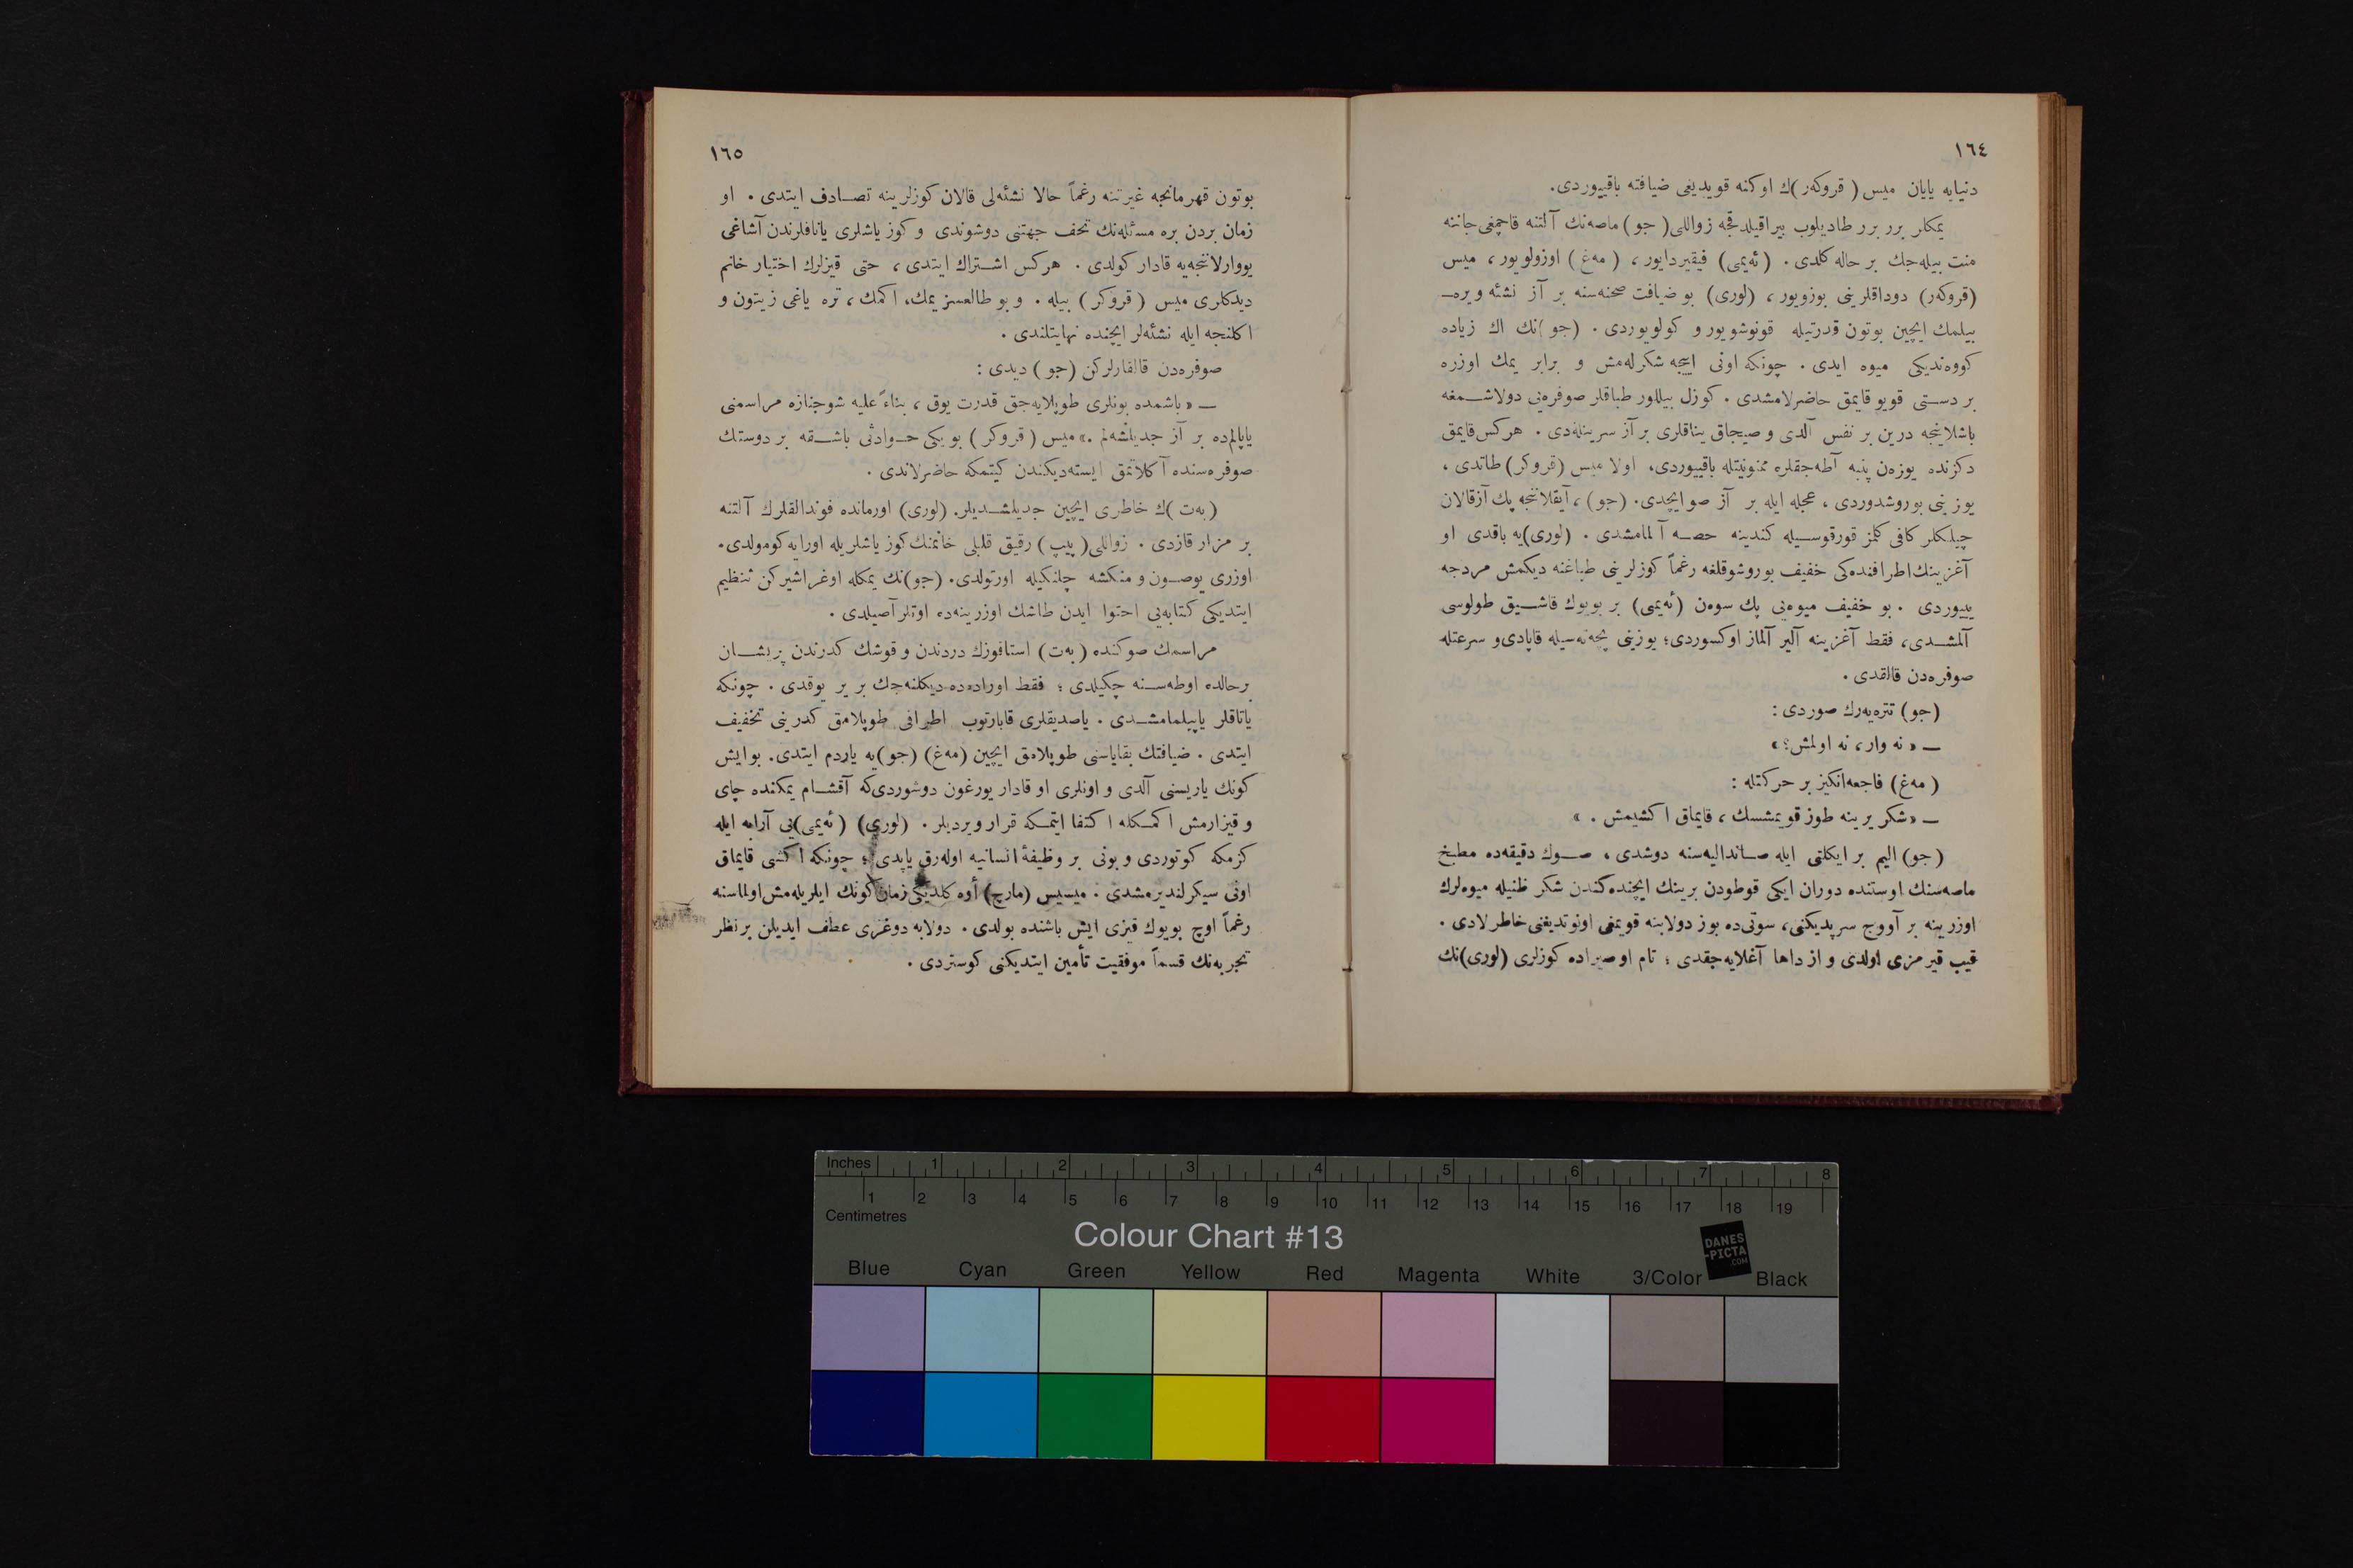 ١٦٤
دنیایه یایان میس ( قروکه‌ر )ك اوکنه قویدیغی ضیافته باقیوردی.
یمکلر برر برر طادیلوب بیراقیلدقجه زواللی ( جو ) ماصه‌نك آلتنه قاچمغی جاننه
منت بیله‌جك بر حاله کلدی . (ئه‌یمی) فیقیردایور ، ( مه‌غ ) اوزولویور ، میس
(قروکه‌ر) دوداقلرینی بوزویور ، (لوری) بو ضیافت صحنه‌سنه بر آز نشئه ویره‌ـ
بیلمك ایچین بوتون قدرتیله قونوشویور و کولویوردی . (جو )نك اك زیاده
کووه‌ندیکی میوه ایدی . چونکه اونی اییجه شکرله‌مش و برابر یمك اوزره
بر دستی قویو قایمق حاضرلامشدی . کوزل بیللور طباقلر صوفره‌یی دولاشمغه
باشلاینجه درین بر نفس آلدی و صیجاق یناقلری بر آز سرینله‌دی . هرکس قایمق
دکزنده یوزه‌ن پنبه آطه‌جقلره ممنونیتله باقیوردی، اولا میس (قروکر) طاتدی ،
یوزینی بوروشدوردی ، عجله ایله بر آز صو ایچدی. (جو) ، آیقلاننجه پك آز قالان
چیلکلر کافی کلمز قورقوسیله کندینه حصه آلمامشدی . (لوری)یه باقدی او
آغزینك اطرافنده‌کی خفیف بوروشوقلغه رغماً کوزلرینی طباغنه دیکمش مردجه
ییوردی . بو خفیف میوه‌یی پك سوه‌ن (ئه‌یمی) بر بویوك قاشیق طولوسی
آلمشدی، فقط آغزینه آلیر آلماز اوکسوردی؛ یوزینی پچه‌ته‌سیله قاپادی و سرعتله
صوفره‌دن قالقدی .
(جو) تتره‌یه‌رك صوردی :
ـ « نه وار ، نه اولمش؟ »
( مه‌غ) فاجعه‌انکیز بر حرکتله :
ـ «شکر یرینه طوز قویمشسك ، قایماق اکشیمش . »
(جو) الیم بر ایکلتی ایله صاندالیه‌سنه دوشدی ، صوك دقیقه‌ده مطبخ
ماصه‌سنك اوستنده دوران ایکی قوطودن برینك ایچنده‌کندن شکر ظنیله میوه‌لرك
اوزرینه بر آووج سرپدیکنی، سوتی‌ده بوز دولابنه قویمغی اونوتدیغنی خاطرلادی .
قیب قیرمزی اولدی و از داها آغلایه‌جقدی ؛ تام او صیراده کوزلری (لوری)نك
١٦٥
بوتون قهرمانجه غیرتنه رغماً حالا نشئه‌لی قالان کوزلرینه تصادف ایتدی . او
زمان بردن بره مسئله‌نك تحف جهتنی دوشوندی و کوز یاشلری یاناقلرندن آشاغی
یووارلاننجه‌یه قادار کولدی . هرکس اشتراك ایتدی ، حتی قیزلرك اختیار خانم
دیدکلری میس ( قروکر ) بیله . و بو طالعسز یمك، اکمك ، تره یاغی زیتون و
اکلنجه ایله نشئه‌لر ایچنده نهایتلندی .
صوفره‌دن قالقارلرکن (جو ) دیدی :
ـ « باشمده بونلری طوپلایه‌جق قدرت یوق ، بناءً علیه شو جنازه مراسمنی
یاپالم‌ده بر آز جدیلشه‌لم .» میس ( قروکر ) بو یکی حوادثی باشقه بر دوستك
صوفره‌سنده آکلاتمق ایسته‌دیکندن کیتمکه حاضرلاندی .
(به‌ت )ك خاطری ایچین جدیلشدیلر. (لوری) اورمانده فوندالقلرك آلتنه
بر مزار قازدی . زواللی ( پیپ ) رقیق قلبلی خانمنك کوز یاشلریله اورایه کومولدی.
اوزری یوصون و منکشه چلنکیله اورتولدی. (جو)نك یمکله اوغراشیرکن تنظیم
ایتدیکی کتابه‌یی احتوا ایدن طاشك اوزرینه‌ده اوتلر آصیلدی .
مراسمك صوکنده (به‌ت) استاقوزك دردندن و قوشك کدرندن پریشان
برحالده اوطه‌سنه چکیلدی ؛ فقط اوراده‌ده دیکلنه‌جك بر یر یوقدی . چونکه
یاتاقلر یاپیلمامشدی . یاصدیقلری قابارتوب اطرافی طوپلامق کدرینی تخفیف
ایتدی . ضیافتك بقایاسنی طوپلامق ایچین (مه‌غ) (جو)یه یاردم ایتدی. بو ایش
کونك یاریسنی آلدی و اونلری او قادار یورغون دوشوردی‌که آقشام یمکنده چای
و قیزارمش اکمکله اکتفا ایتمکه قرار ویردیلر . (لوری) (ئه‌یمی)یی آرابه ایله
کزمکه کوتوردی و بونی بر وظیفهٔ انسانیه اوله‌رق یاپدی ؛ چونکه اکشی قایماق
اونی سیکرلندیرمشدی . میسیس (مارچ) أوه کلدیکی زمان کونك ایلریله‌مش اولماسنه
رغماً اوچ بویوك قیزی ایش باشنده بولدی . دولابه دوغری عطف ایدیلن بر نظر
تجربه‌نك قسماً موفقیت تأمین ایتدیکنی کوستردی .
Inches 1 2 3 4 5 6 7 8
1 2 3 4 5 6 7 8 9 10 11 12 13 14 15 16 17 18 19
Centimetres
Colour Chart #13
DANES
-PICTA
.COM
Blue Cyan Green Yellow Red Magenta White 3/Color Black